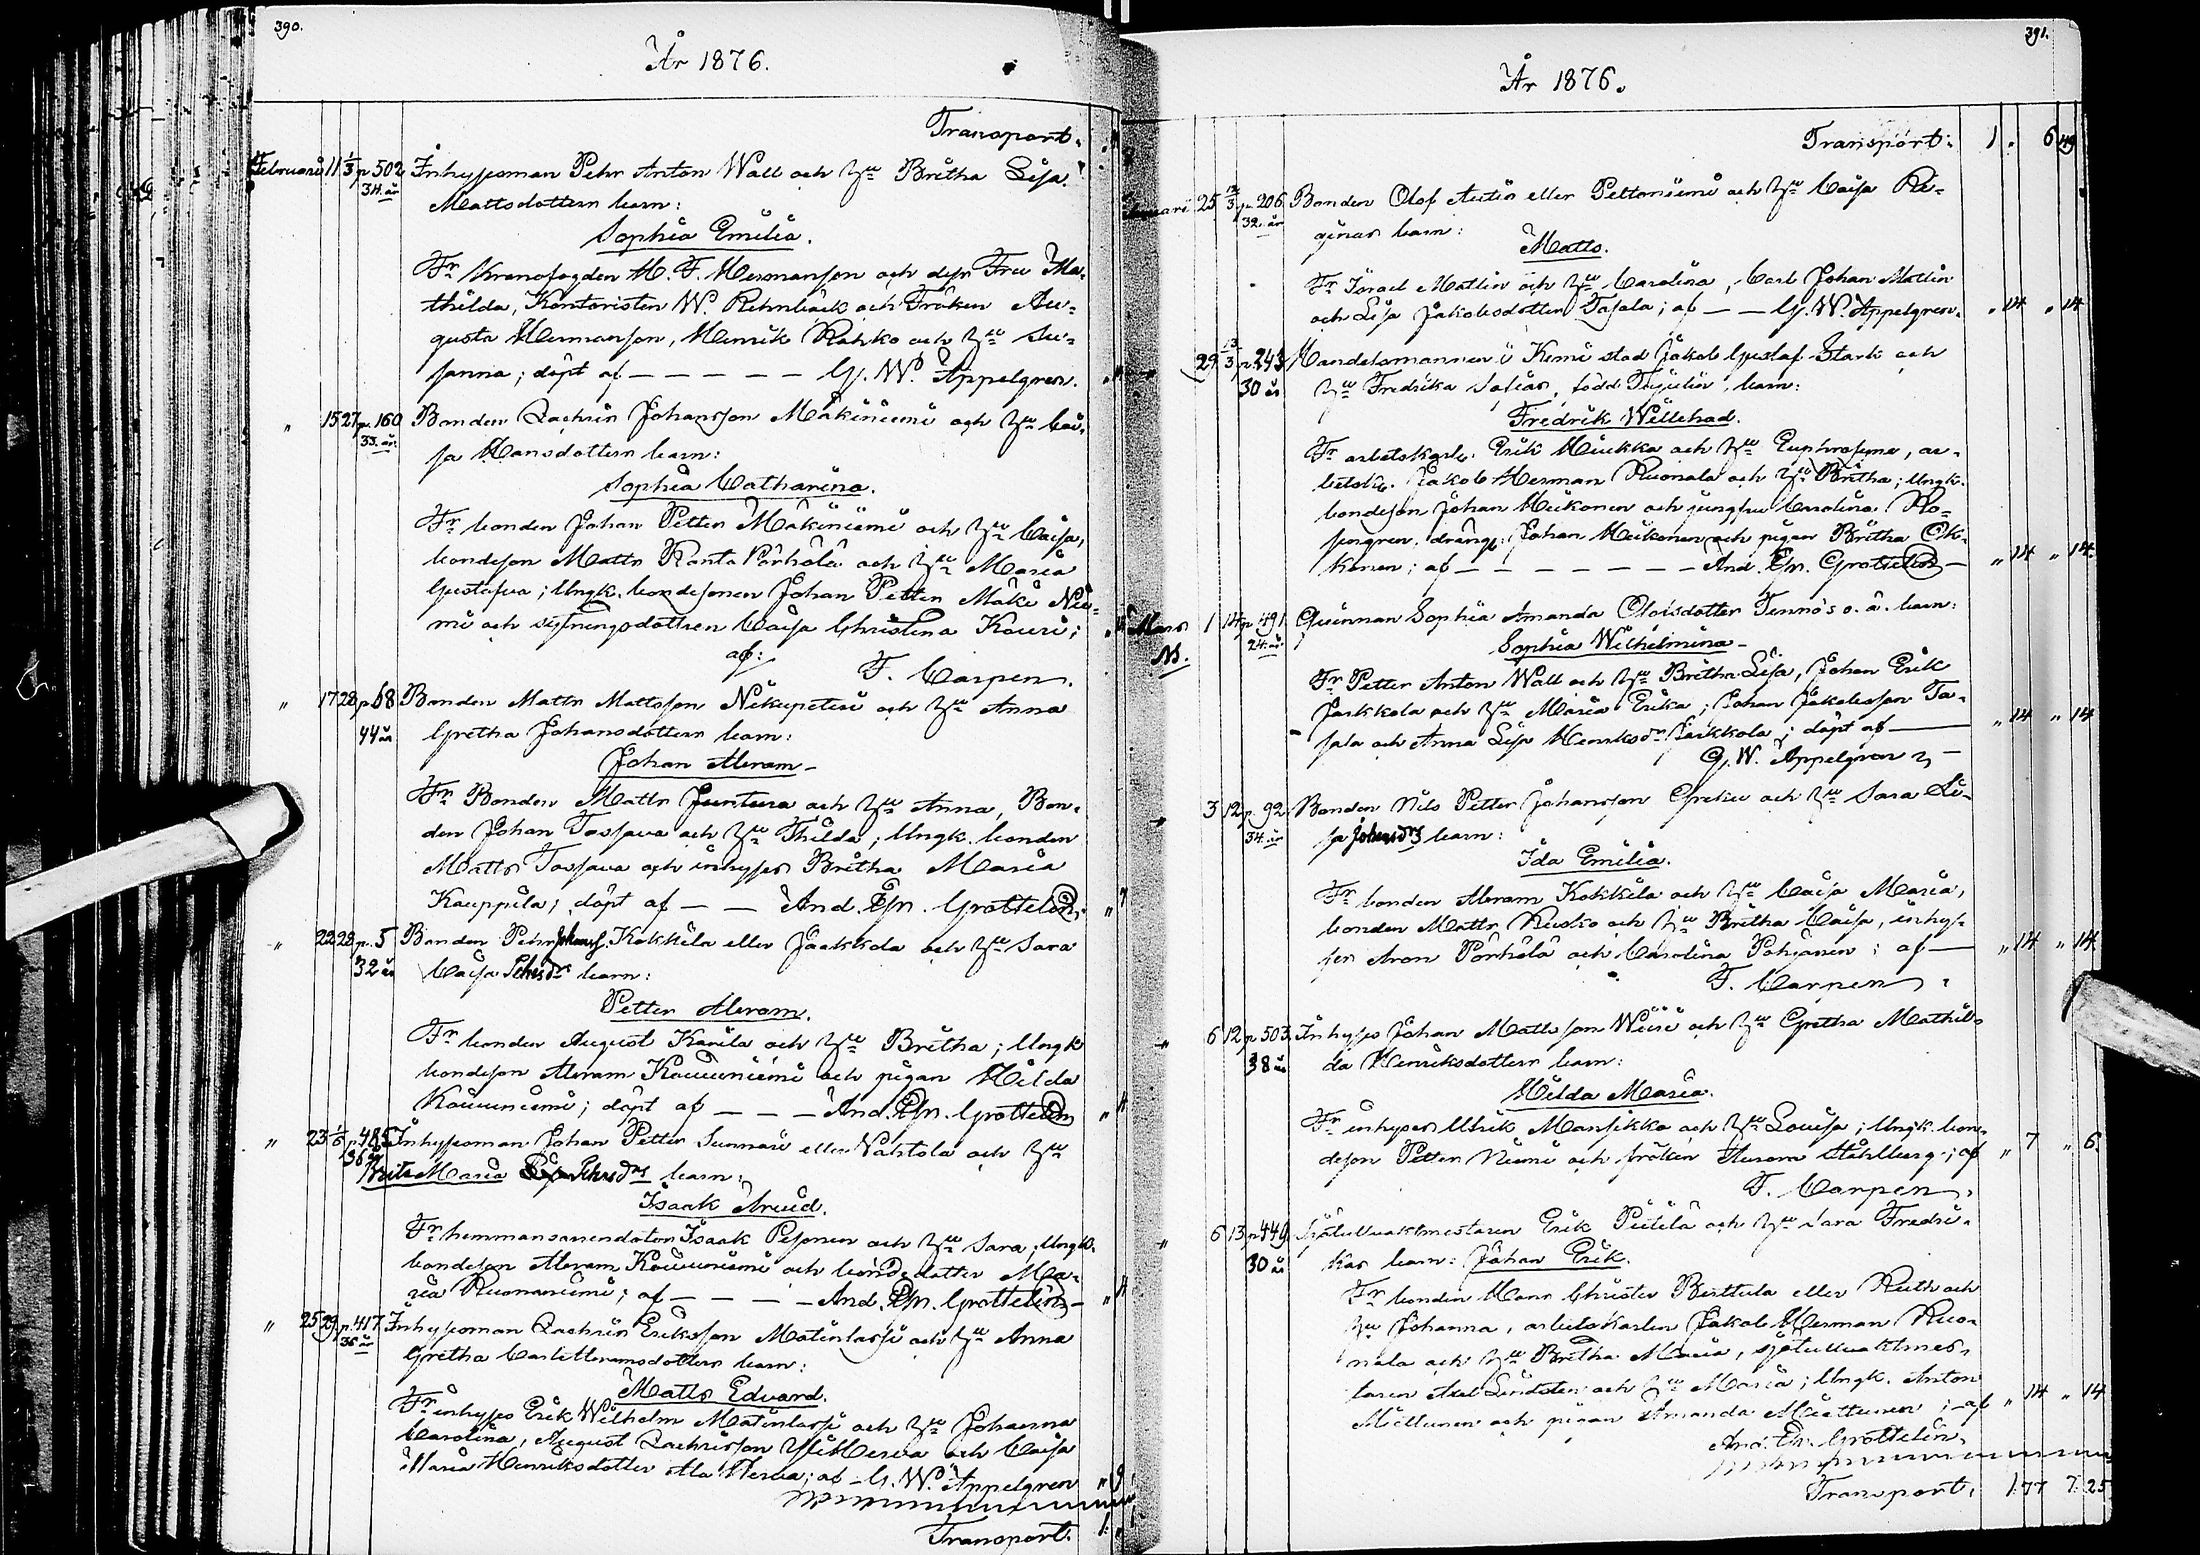 390.
År 1876.
Transport:
Februari 11 1/3 p. 502 Inhysesman Pehr Anton Wall och h:u Britha Lisa
34. år Mattsdotters barn:
Sophia Emilia.
Fr. Kronofogden M. F. Hermanson och dess Fru Ma-
thilda, Kontoristen W. Rehnbäck och Fröken Au-
gusta Hermanson, Henrik Rahko och h:u Su-
sanna; döpt af — — — — — G. W. Appelgren.
" 15 27 p. 160 Bonden Zachris Johansson Mäkiniemi och h:u Cai-
33. år. sa Hansdotters barn:
Sophia Catharina.
Fr. bonden Johan Petter Mäkiniemi och h:u Caisa,
bondeson Matts Ranta Pörhölä och h:u Maria
Gustafva; Ungk. bondesonen Johan Petter Mäki Nie-
mi och sytningsdottren Caisa Christina Kouri;
af: F. Carpen.
" 17 28 p. 68 Bonden Matts Mattsson Nikupeteri och h:u Anna
44 år Gretha Johansdotters barn:
Johan Abram —
Fr. Bonden Matts Juntura och h:u Anna, Bon-
den Johan Tossava och h:u Thilda; Ungk. bonden
Matts Tossava och inhyses Britha Maria
Kauppila; döpt af — — And. Gr. Grottelin, " 7
" 22 28 p. 5 Bonden Pehr Johanss. Kokkila eller Jaakkola och h:u Sara
32 år Caisa Pehrsdrs barn:
Petter Abram.
Fr. bonden August Karila och h:u Britha; Ungk
bondeson Abram Kouvuniemi och pigan Hilda
Kouvuniemi; döpt af — — — And. Gr. Grottelin
" 23 1/3 p. 485 Inhysesman Johan Petter Sunnari eller Vahtola och h:u
36 år Brita Maria Pehrsdrs barn:
Isaak Arvid.
Fr. hemmansarendatorn Isaak Pesonen och h:u Sara; Ungk.
bondeson Abram Kouvuniemi och bondedotter Ma-
ria Ruonaniemi; af — — — — And. Gr. Grottelin —
" 25 29 p. 417 Inhysesman Zachris Eriksson Matinlassi och h:u Anna
36 år Gretha Carl Abramsdotters barn:
Matts Edvard.
Fr. inhyses Erik Wilhelm Matinlassi och h:u Johanna
Carolina, August Zachrisson Yli Herva och Caisa
Maria Henriksdotter Ala Herva; af G. W. Appelgren
Transport.
391.
År 1876.
Transport: 1. 6 49
Februari 25 12/3 p. 206 Bonden Olof Autio eller Peltoniemi och h:u Caisa Re-
32. år ginas barn:
Matts.
Fr. Israel Mattin och h:u Carolina, Carl Johan Mattin
och Lisa Jakobsdotter Tasala; af — — G. W. Appelgren. " 14 " 14
29 13/3 p. 243 Handelsmannen i Kemi stad Jakob Gustaf Stark och
30 år h:u Fredrika Sofias, född Tujulin, barn:
Fredrik Willehad.
Fr. arbetskarl. Erik Kiukka och h:u Euphrosyne, ar-
betsk. Jakob Herman Ruonala och h:u Britha; Ungk.
bondeson Johan Heikonen och jungfru Carolina Ro-
sengren. dräng: Johan Heikonen och pigan Britha Ok-
konen; af — — — — — — — And. Gr. Grottelin — " 14 " 14.
Mars 1 14 p. 491 Qvinnan Sophia Amanda Olofsdotter Tennös o. ä. barn:
M. 24. år Sophia Wilhelmina —
Fr. Petter Anton Wall och h:u Britha Lisa, Johan Erik
Jaakkola och h:u Maria Erika; Johan Jakobsson Ta-
sala och Anna Lisa Henriksdr Jaakkola; döpt af — " 14 " 14
G. W. Appelgren
3 12 p. 92 Bonden Nils Petter Johansson Greku och h:u Sara Li-
34. år sa Johansdrs barn:
Ida Emilia.
Fr. bonden Abram Kokkila och h:u Caisa Maria,
bonden Matts Ruisko och h:u Britha Caisa, inhy-
ses Aron Pörhölä och Carolina Pohjanen; af — " 14 " 14.
F. Carpen
" 6 12 p. 503. Inhyses Johan Mattsson Wiiri och h:u Gretha Mathil-
38 år da Henriksdotters barn:
Hilda Maria.
Fr. inhyses Ulrik Mansikka och h:u Lovisa; Ungk. bon-
deson Petter Niemi och fröken Aurora Ståhlberg; af " 7 " 6.
F. Carpen.
" 6 13 p. 449 Sjötullvaktmestaren Erik Piitilä och h:u Sara Fredri-
30 år kas barn: Johan Erik.
Fr. bonden Hans Christer Berttula eller Ruth och
h:u Johanna, arbetskarlen Jakob Herman Ruo-
nala och h:u Britha Maria, sjötullvaktmes-
taren Axel Lindsten och h:u Maria; Ungk. Anton
Miettunen och pigan Amanda Miettunen; af " 14 " 14
And. Gr. Grottelin.
Transport. 1 77 7. 25